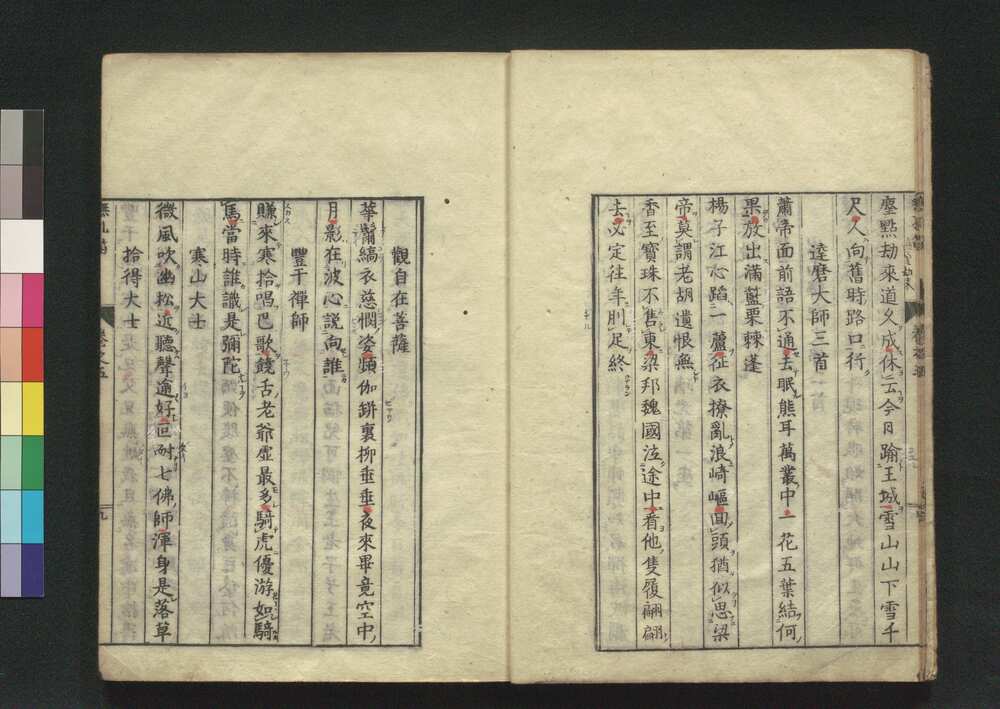 塵點劫來道乆成休云今日踰王城雪山山下雪千
尺人向舊時路口行
達磨大師三首
蕭帝面前語不通去眠熊耳萬叢中一花五葉結何
果放出滿籃栗棘蓬
楊子江心蹈一蘆征衣撩亂浪﨑嶇囬頭猶似思梁
帝莫謂老胡遺恨無
香至寶珠不售東梁邦魏國泣途中看他隻履翩翩
去必定往年刖足終
觀自在菩薩
華鬘縞衣慈憫姿頻伽缾裏栁垂垂夜來畢竟空中
月影在波心説向誰
豐干禪師
賺來寒拾唱巴歌饒舌老爺虛最多騎虎優游如騎
馬當時誰識是彌陀
寒山大士
微風吹幽松近聽聲逾好叵耐七佛師渾身是落草
拾得大士
卷之五
九